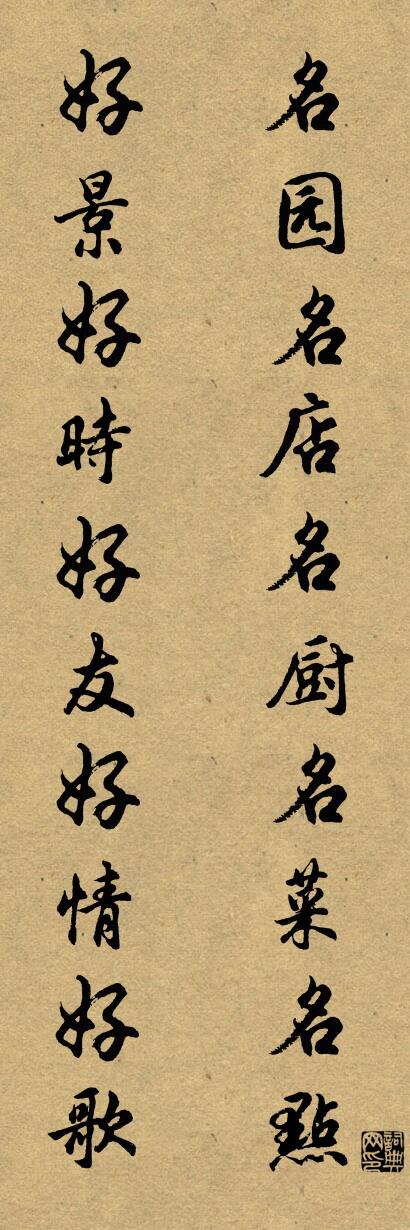 名园名店名厨名菜名點
好景好時好友好情好歌
詞典网印